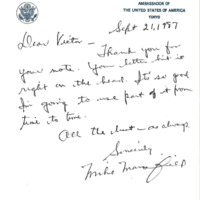 AMBASSADOR OF
THE UNITED STATES OF AMERICA
TOKYO
Sept 21, 1987
Dear Victor –
Thank you for
your note. Your letter hit it
right on the head. It's so good
I'm going to use part of it from
time to time.
All the best – as always
Sincerely,
Mike Mansfield